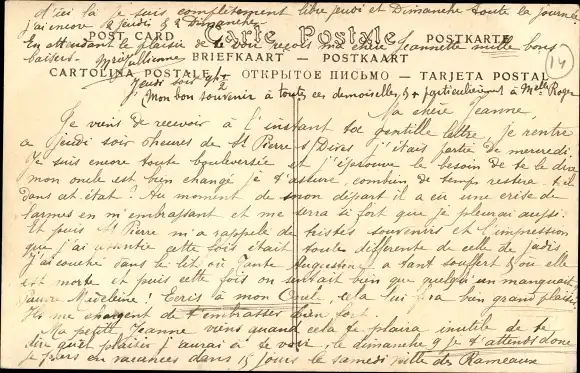 D'ici là je suis complètement libre jeudi et Dimanche toute la journée
j'ai encore
En attendant le plaisir de te voir reçois ma chère Jeannette mille bons
baisers.
POST CARD Carte Postale POSTKARTE
BRIEFKAART — POSTKAART
CARTOLINA POSTALE ОТКРЫТОЕ ПИСЬМО — TARJETA POSTAL
14
Jeudi soir 9h ½
Mon bon souvenir à toutes ces demoiselles, & particulièrement à Melle Roger
Ma chère Jeanne,
Je viens de recevoir à l'instant ta gentille lettre. Je rentre
ce Jeudi soir 8heures de St Pierre s/Dives j'étais partie de mercredi,
Je suis encore toute bouleversée et j'éprouve le besoin de te le dire
mon oncle est bien changé je t'assure, combien de temps restera t-il
dans cet état? Au moment de mon départ il a eu une crise de
larmes en m'embrassant et me serra si fort que je pleurai aussi.
Et puis St Pierre m'a rappelé de tristes souvenirs et l'impression
que j'ai cette fois était toute différente de celle de jadis
j'ai couché dans le lit où Tante Augustine a tant souffert & où elle
est morte et puis cette fois on sentait bien que quelqu'un manquait
pauvre Madeleine! Ecris à mon Oncle, cela lui fera bien grand plaisir
Ils me chargent de t'embrasser bien fort.
Ma petite Jeanne viens quand cela te plaira inutile de te
dire quel plaisir j'aurai à te voir, le dimanche 9 je t'attends donc
je pars en vacances dans 15 jours le samedi veille des Rameaux